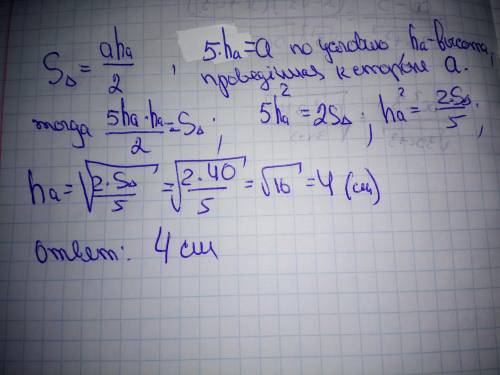 S△ = aha/2, 5·ha = a по условию, ha-высота,
проведённая к стороне a.
тогда 5ha·ha/2 = S△; 5ha² = 2S△; ha² = 2S△/5;
ha = √(2·S△/5) = √(2·40/5) = √16 = 4 (см)
ответ: 4 см